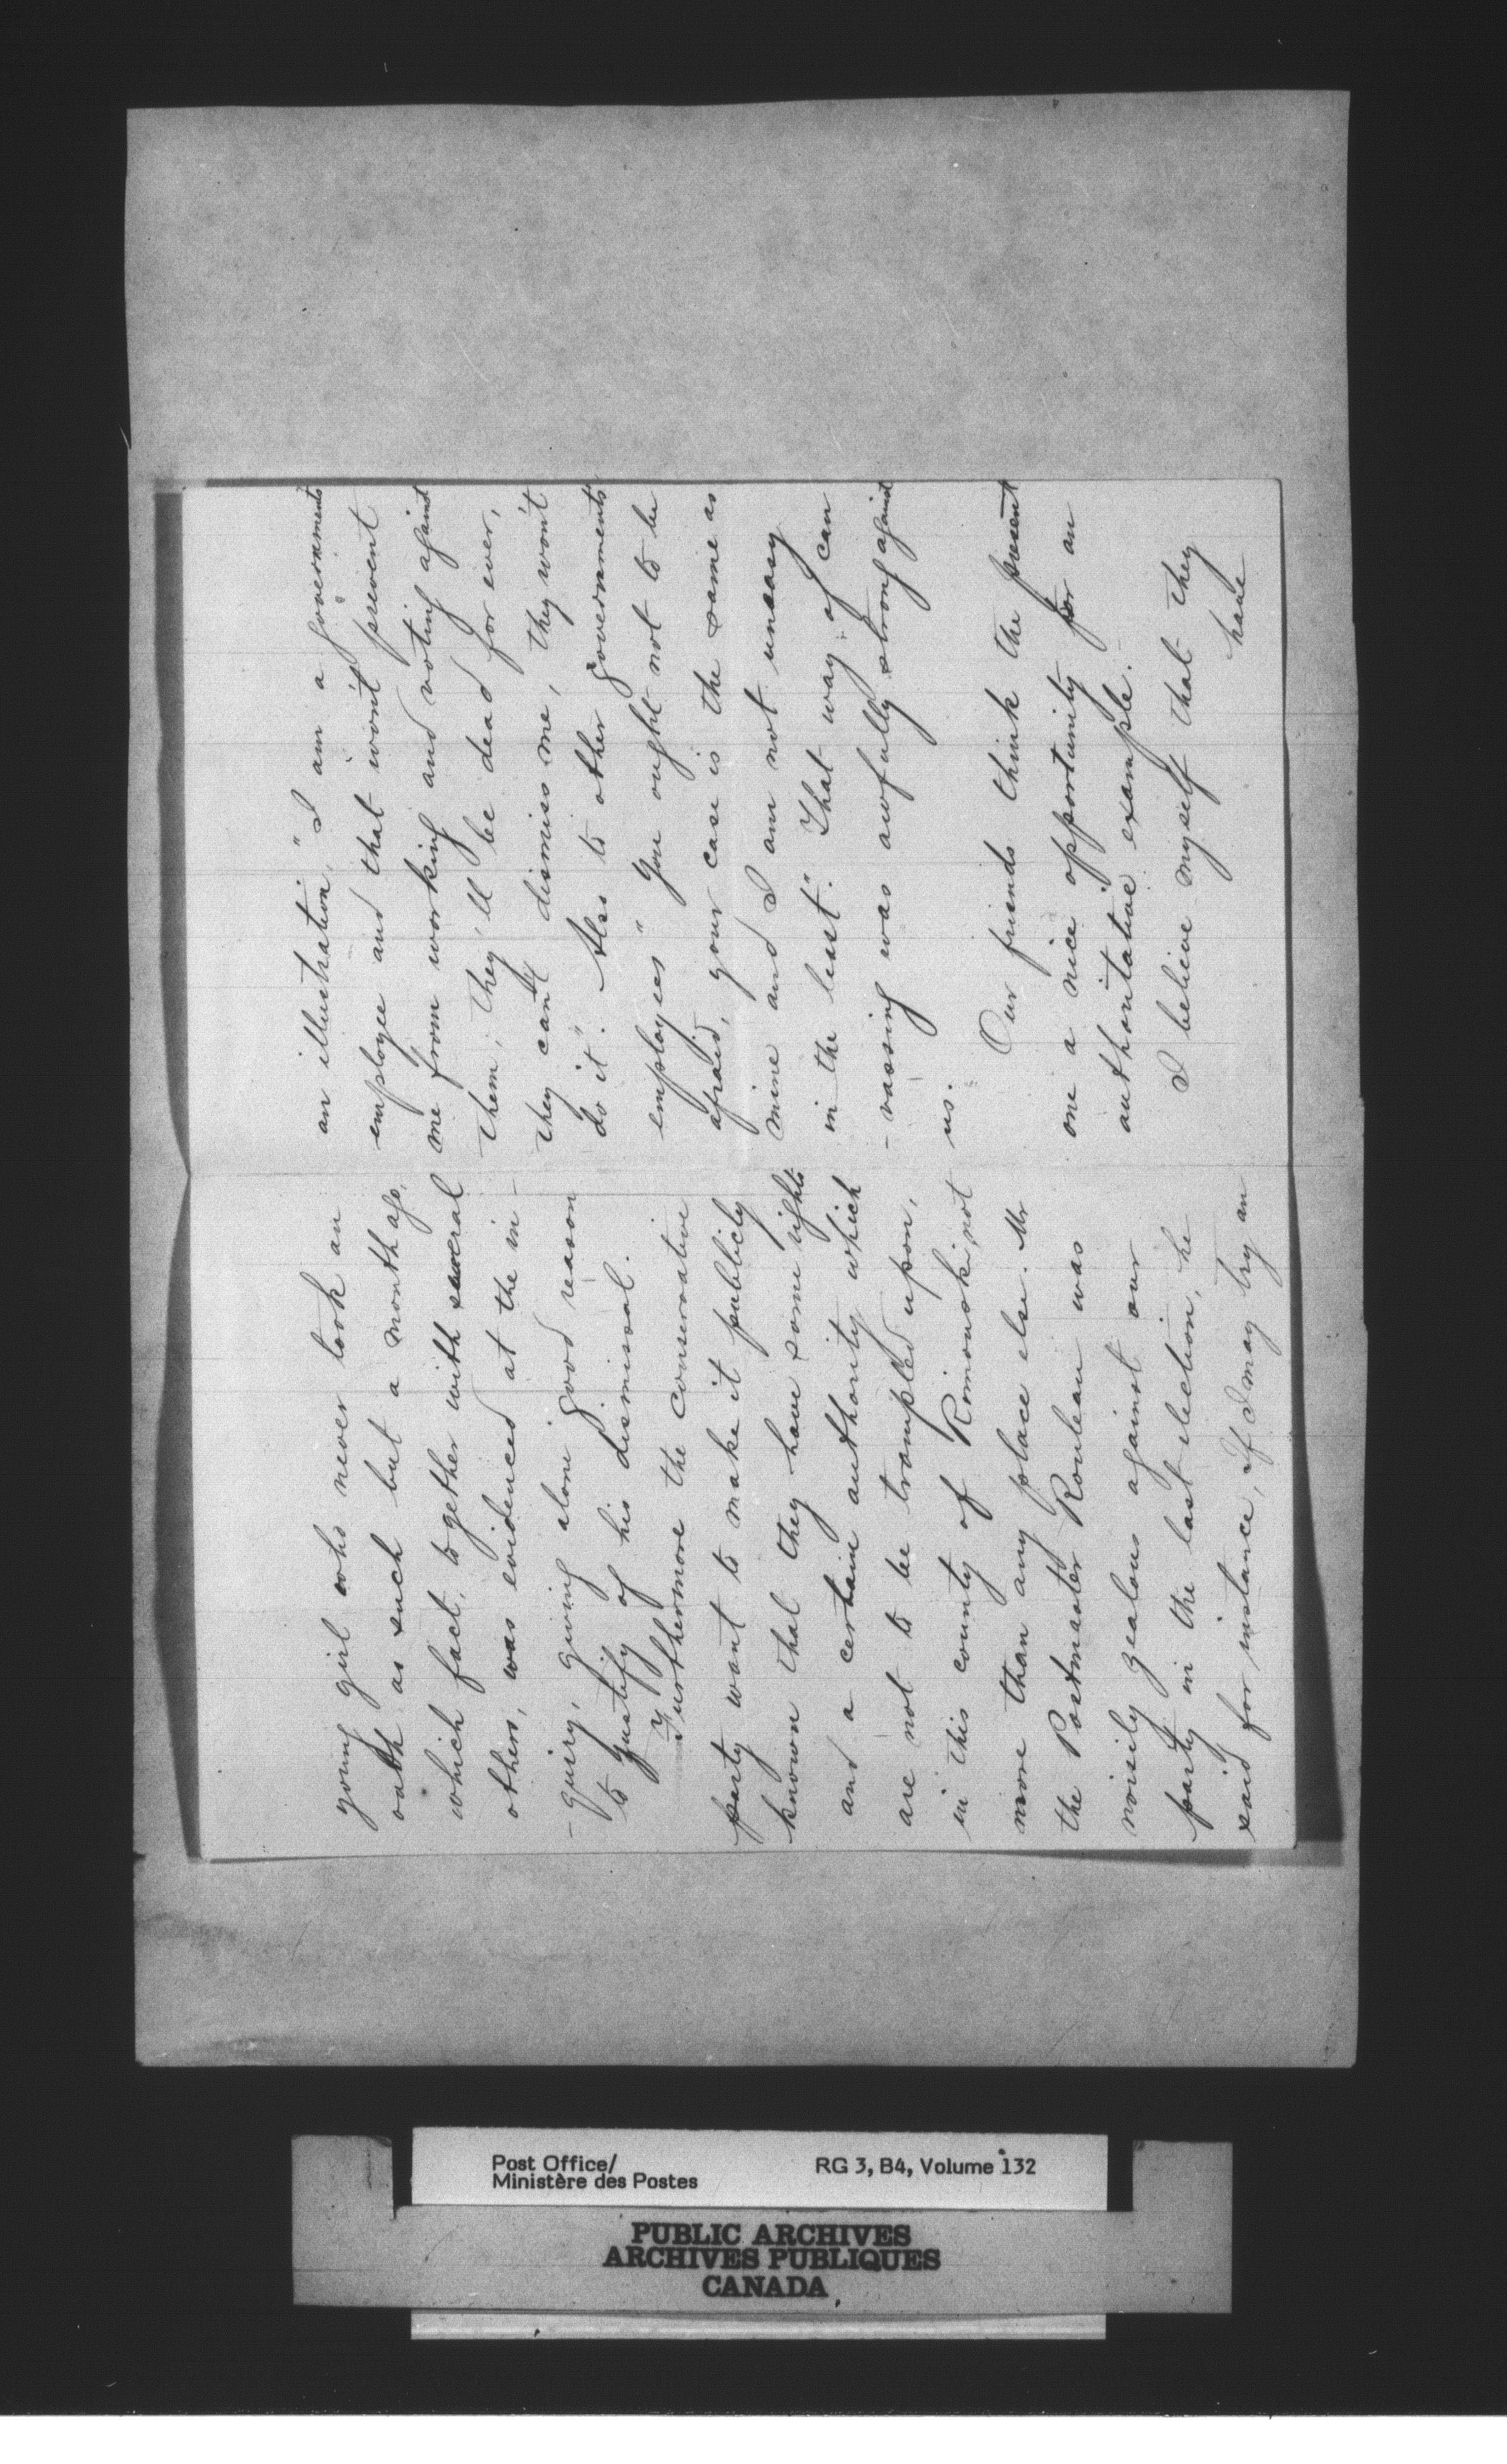 young girl who never took an
oath as such but a month ago,
which fact, together with several
others, was evidenced at the in-
-quiry, giving alone good reason
to justify of his dismissal.
Furthermore the Conservative
party want to make it publicly
known that they have some rights
and a certain authority which
are not to be trampled upon,
in this county of Rimouski, not
more than any place else. Mr
the Postmaster Rouleau was
noisily zealous against our
party in the last election, he
said for instance, If I may try an
an illustration, "I am a government's
employee and that won't prevent
me from working and voting against
them, they'll be dead for ever,
they can't dismiss me, they won't
do it". Also to other governments
employees "you ought not to be
afraid, your case is the same as
mine and I am not uneasy
in the least". That way of can
-vassing was awfully strong against
us.
Our friends think the present
one a nice opportunity for an
authoritative example.
I believe myself that they
have
Post Office/
Ministère des Postes
RG 3, B4, Volume 132
PUBLIC ARCHIVES
ARCHIVES PUBLIQUES
CANADA